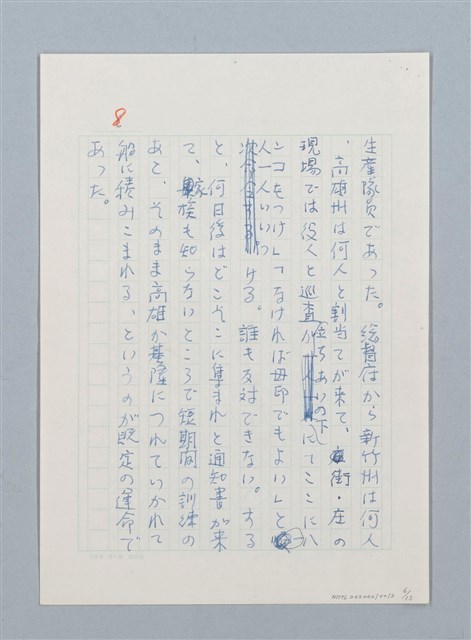 8
生産隊員であった。総督府から新竹州は何人
、高雄州は何人と割当てが来て、街・庄の
現場では役人と巡査が立ちあいの下にてここにハ
ンコをつけ」「なければ母印でもよい」と
一人一人いいつける。誰も反対できない。する
と、何日後はどこそこに集まれと通知書が来
て、家族も知らないところで短期間の訓練の
あと、そのまま高雄か基隆につれていかれて
船に積みこまれる、というのが既定の運命で
あった。
6/12